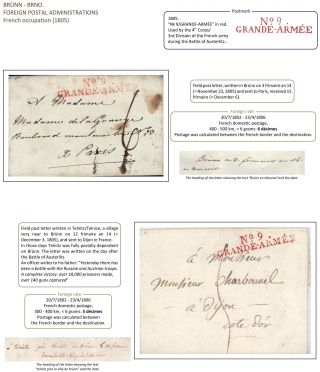 BRÜNN - BRNO.
FOREIGN POSTAL ADMINISTRATIONS
French occupation (1805)
Postmark
1805.
"Nº 9/GRANDE-ARMÉE" in red.
Used by the 4th Corps'
3rd Division of the French army
during the Battle of Austerlitz.
Nº 9
GRANDE-ARMÉE
Nº 9
GRANDE-ARMÉE
A Madame
Madame
Paris
Field post letter, written in Brünn on 3 frimaire an 14
(= November 23, 1805) and sent to Paris, received 15
frimaire (= December 6).
Foreign rate
20/7/1802 - 23/4/1806
French domestic postage,
400 - 500 km, < 6 grams: 6 décimes
Postage was calculated between the French border and the destination.
The heading of the letter showing the text
Field post letter written in Telnitz/Telnice, a village
very near to Brünn on 12 frimaire an 14 (=
December 3, 1805), and sent to Dijon in France.
In those days Telnitz was fully postally dependent
on Brünn. The letter was written on the day after
the Battle of Austerlitz.
An officer writes to his father: "Yesterday there has
been a battle with the Russian and Austrian troops.
A complete victory: over 18,000 prisoners made,
over 140 guns captured"
Foreign rate
20/7/1802 - 23/4/1806
French domestic postage,
300 - 400 km, < 6 grams: 5 décimes
Postage was calculated between
the French border and the destination.
The heading of the letter showing the text
and the date.
Nº 9
GRANDE-ARMÉE
à Monsieur
Monsieur Charbonnel
à Dijon
Côte d'or